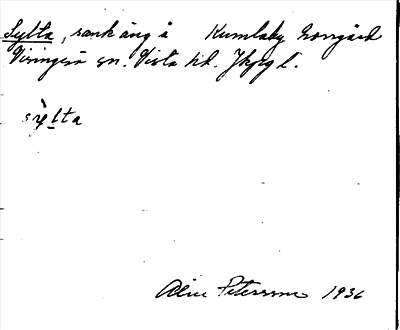 Sylta, sankäng å Kumlaby Norrgård
Visingsö sn. Vista hd. Jkpg l.
sỳlta
Alice Petersson 1936